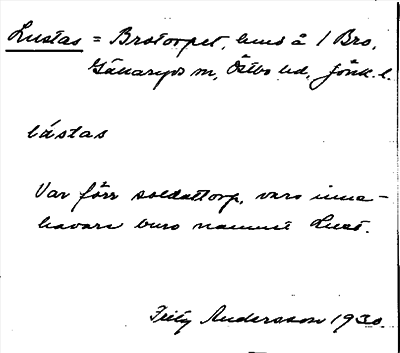 Lustas = Brotorpet, hmd å 1 Bro,
Gällaryds sn, Östbo hd, Jönk. l.
lústas
Var förr soldattorp, vars inne-
havare buro namnet Lust.
Fritz Andersson 1930.